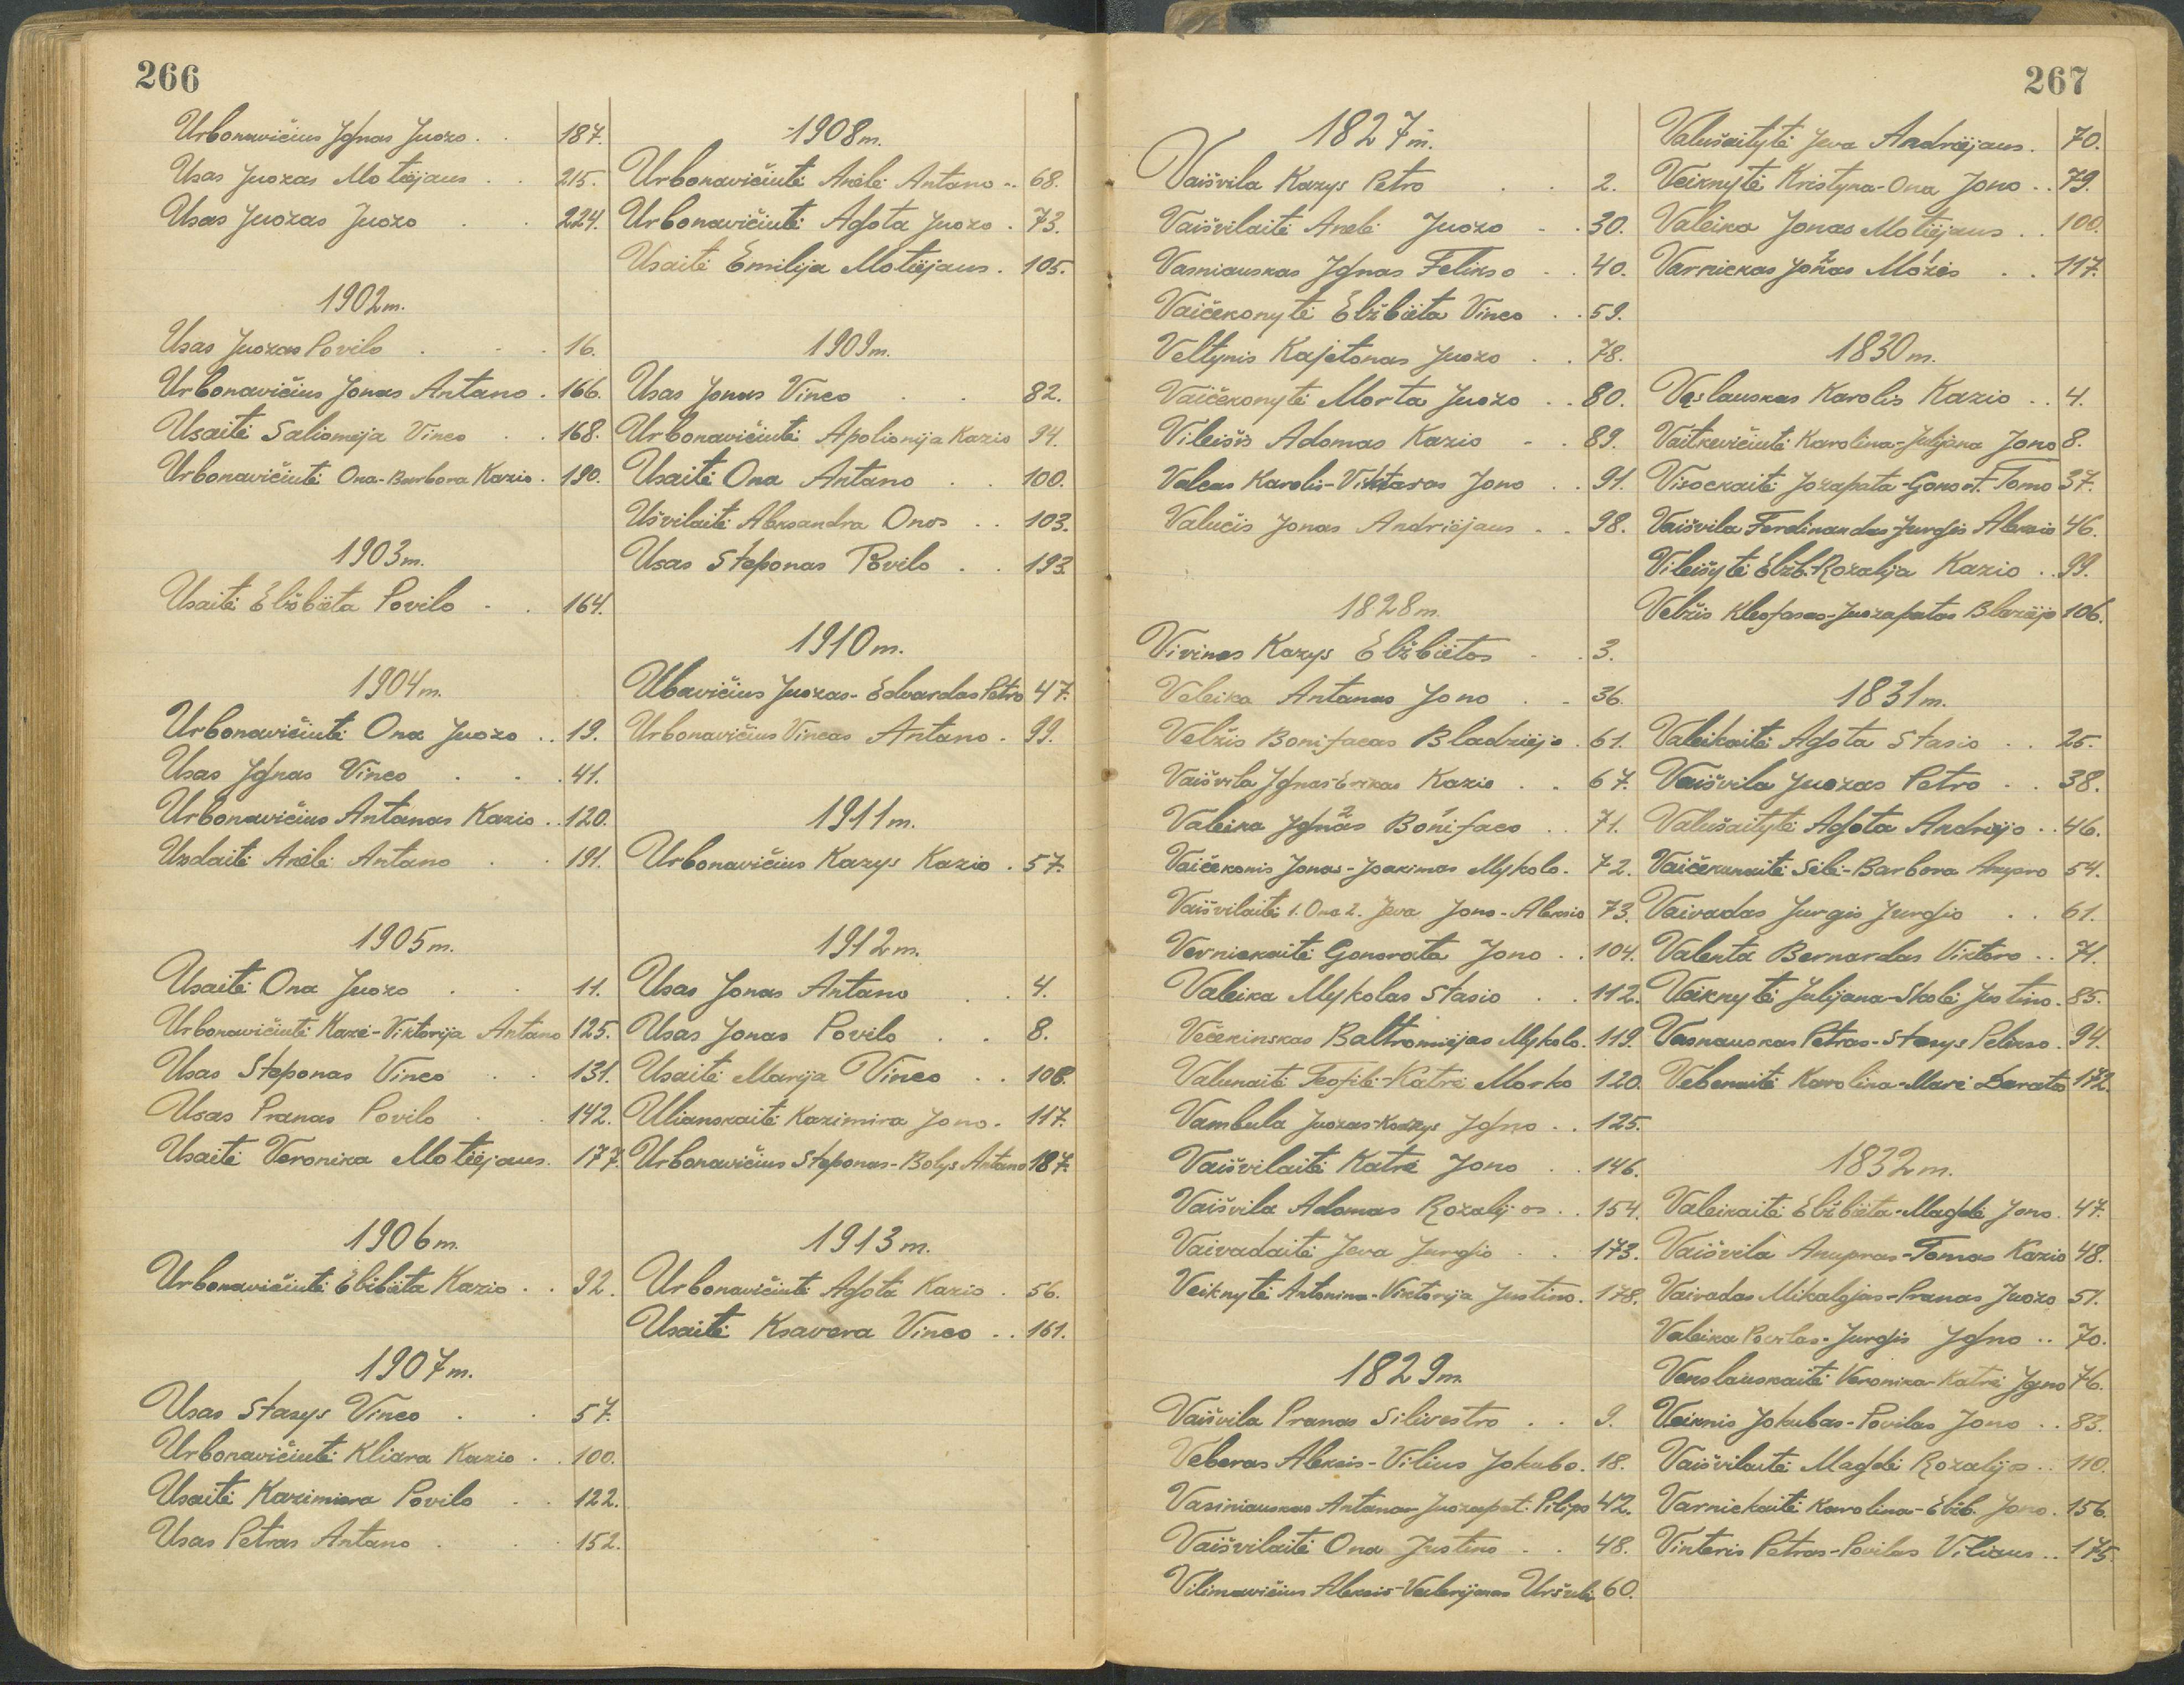 266
Urbonavičius Ignas Juozo . . 187.
Usas Juozas Motiejaus . . 215.
Usas Juozas Juozo . . 224.
1902 m.
Usas Juozas Povilo . . . 16.
Urbonavičius Jonas Antano . 166.
Usaitė Saliomėja Vinco . . 168.
Urbonavičiutė Ona-Barbora Kazio . 190.
1903 m.
Usaitė Elžbieta Povilo . . 164.
1904 m.
Urbonavičiutė Ona Juozo . . 19.
Usas Ignas Vinco . . . 41.
Urbonavičius Antanas Kazio . . 120.
Uzdaitė Anėlė Antano . . 191.
1905 m.
Usaitė Ona Juozo . . 11.
Urbonavičiutė Kazė-Viktorija Antano 125.
Usas Steponas Vinco . . 131.
Usas Pranas Povilo . . 142.
Usaitė Veronika Motiejaus . 177.
1906 m.
Urbonavičiutė Elžbieta Kazio . . 92.
1907 m.
Usas Stasys Vinco . . 57.
Urbonavičiutė Kliara Kazio . . 100.
Usaitė Kazimiera Povilo . . 122.
Usas Petras Antano . . 152.
1908 m.
Urbonavičiutė Anėlė Antano . . 68.
Urbonavičiutė Agota Juozo . 73.
Usaitė Emilija Motiejaus . 105.
1909 m.
Usas Jonas Vinco . . 82.
Urbonavičiutė Apolionija Kazio 94.
Usaitė Ona Antano . . 100.
Ušvilaitė Aleksandra Onos . . 103.
Usas Steponas Povilo . . 193.
1910 m.
Ubavičius Juozas-Edvardas Petro 47.
Urbonavičius Vincas Antano . 99.
1911 m.
Urbonavičius Kazys Kazio . 57.
1912 m.
Usas Jonas Antano . . 4.
Usas Jonas Povilo . . 8.
Usaitė Marija Vinco . . 108.
Ulianskaitė Kazimira Jono . 117.
Urbonavičius Steponas-Bolys Antano 187.
1913 m.
Urbonavičiutė Agota Kazio . 56.
Usaitė Ksavera Vinco . . 161.
267
1827 m.
Vaišvila Kazys Petro . . 2.
Vaišvilaitė Anelė Juozo . . 30.
Vasniauskas Ignas Felikso . . 40.
Vaičekonytė Elžbieta Vinco . . 59.
Veltynis Kajetonas Juozo . . 78.
Vaičekonytė Morta Juozo . . 80.
Vileišis Adomas Kazio . . 89.
Valcas Karolis-Viktaras Jono . . 91.
Valučis Jonas Andriejaus . . 98.
1828 m.
Vivinas Kazys Elžbietos . . 3.
Veleika Antanas Jono . . 36.
Velžis Bonifacas Bladziejo . 61.
Vaišvila Ignas-Erikas Kazio . . 67.
Valeika Ignas 2 Bonifaco 1 . . 71.
Vaičekonis Jonas-Joakimas Mykolo . 72.
Vaišvilaitė 1. Ona 2. Jeva Jono-Aleksio 73.
Verniekaitė Gonorata Jono . . 104.
Valeika Mykolas Stasio . . 112.
Večekinskas Baltromiejas Mykolo . 119.
Valunaitė Teofilė-Katrė Morko 120.
Vambula Juozas-Kazys Igno . . 125.
Vaišvilaitė Katrė Jono . . 146.
Vaišvila Adomas Rozalijos . . 154.
Vaivadaitė Jeva Jurgio . . 173.
Veiknytė Antonina-Viktorija Justino . 178.
1829 m.
Vaišvila Pranas Silvestro . . 9.
Veberas Aleksis-Vilius Jokubo . 18.
Vasiniauskas Antanas-Juozapat. Pilipo 42.
Vaišvilaitė Ona Justino . . 48.
Vilimavičius Aleksis-Valerijonas Uršulės 60.
Valušaitytė Jeva Andriejaus . 70.
Veiknytė Kristyna-Ona Jono . . 79.
Valeika Jonas Motiejaus . . 100.
Varnickas Jonas 2 Mozės 1 . . 117.
1830 m.
Vęslauskas Karolis Kazio . . 4.
Vaitkevičiutė Karolina-Julijana Jono 8.
Visockaitė Jozapata-Gonorat. Tomo 37.
Vaišvila Ferdinandas-Jurgis Aleksio 46.
Vileišytė Elžb.-Rozalija Kazio . . 99.
Velžis Kleofasas-Juozapatas Blaziejo 106.
1831 m.
Valeikaitė Agota Stasio . . 25.
Vaišvila Juozas Petro . . 38.
Valušaitytė Agota Andriejo . . 46.
Vaičekunaitė Silė-Barbora Anupro 54.
Vaivadas Jurgis Jurgio . . 61.
Valenta Bernardas Viktoro . . 71.
Veiknytė Julijana-Skolė Justino . 85.
Vasnauskas Petras-Stasys Felikso . 94.
Vebenaitė Karolina-Marė Daratos 172.
1832 m.
Valeikaitė Elžbieta-Magdė Jono . 47.
Vaišvila Anupras-Tomas Kazio 48.
Vaivadas Mikalojas-Pranas Juozo 51.
Valeika Povilas-Jurgis Igno . . 70.
Venslauskaitė Veronika-Katrė Igno 76.
Veiknis Jokubas-Povilas Jono . . 83.
Vaišvilaitė Magdė Rozalijos . . 110.
Varniekaitė Karolina-Elžb. Jono . 156.
Vinteris Petras-Povilas Viliaus . . 175.